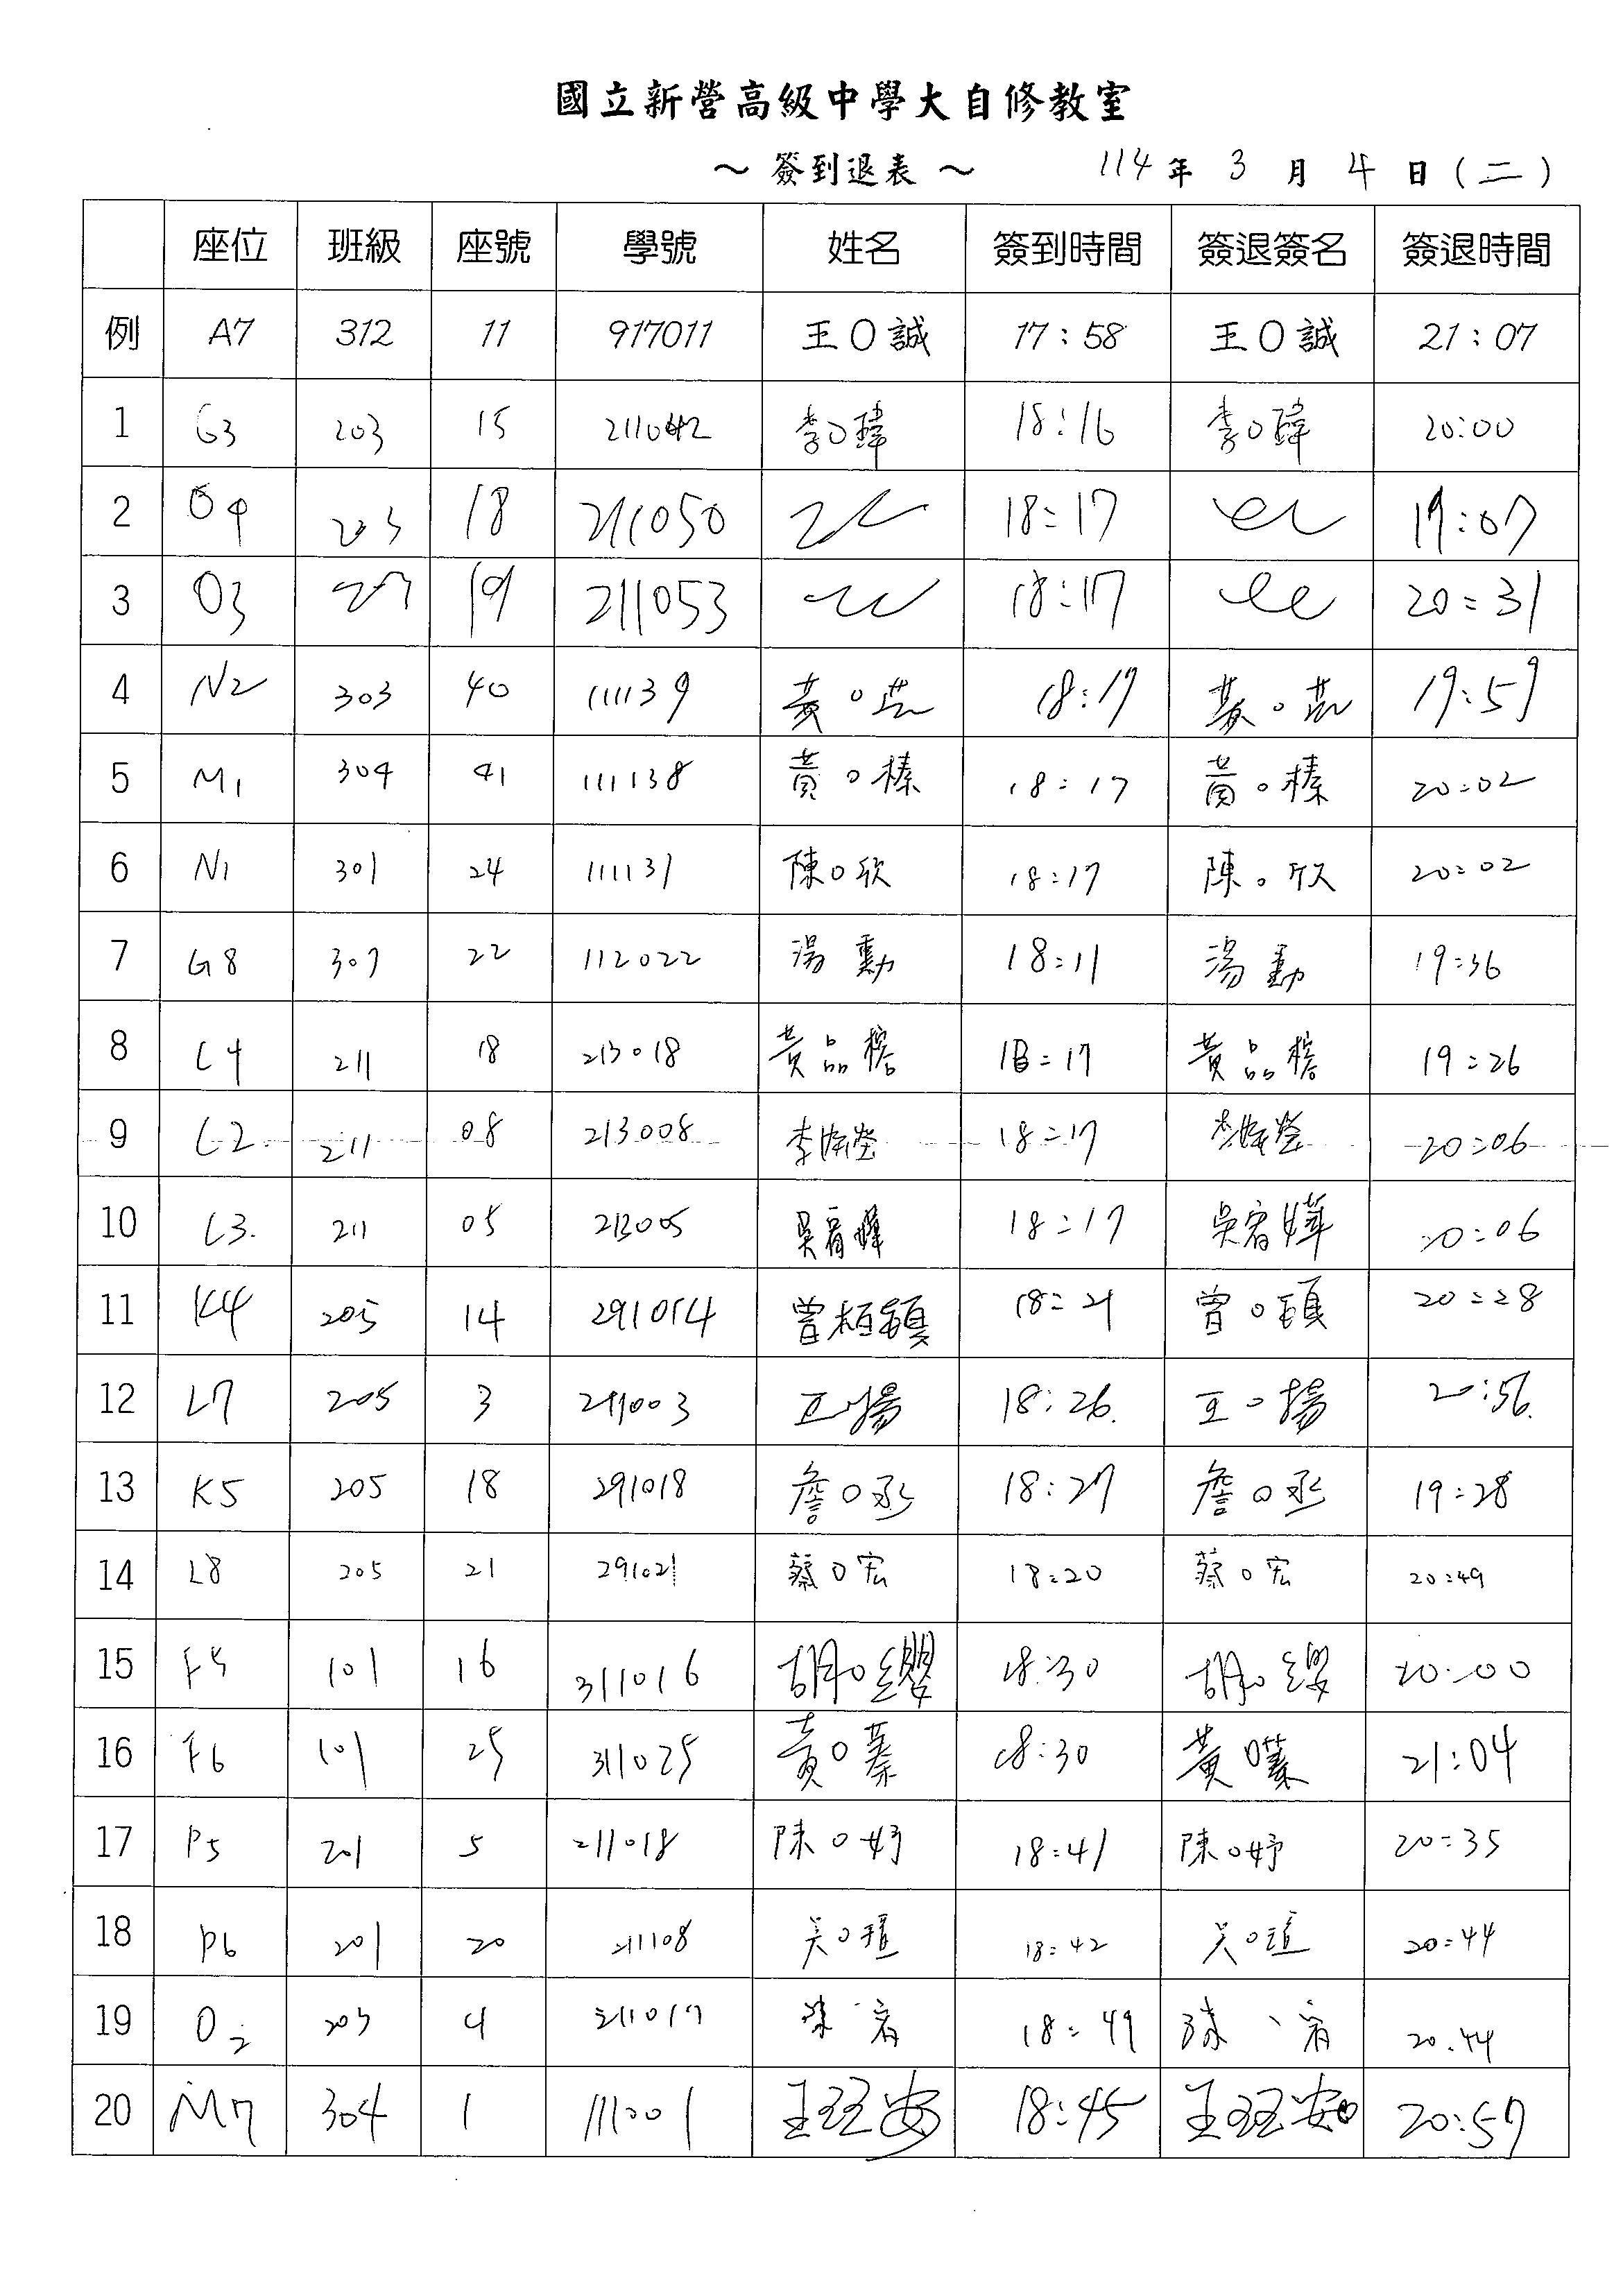 國立新營高級中學大自修教室
～ 簽到退表 ～ 114 年 3 月 4 日 (二)
座位 班級 座號 學號 姓名 簽到時間 簽退簽名 簽退時間
例 A7 312 11 917011 王○誠 17:58 王○誠 21:07
1 G3 203 15 211042 李○瑋 18:16 李○瑋 20:00
2 O4 203 18 211050 18:17 19:07
3 O3 19 211053 18:17 20:31
4 N2 303 40 111139 黃○ 18:17 19:59
5 M1 304 41 111138 黃○榛 18:17 黃○榛 20:02
6 N1 301 24 111131 陳○欣 18:17 陳○欣 20:02
7 G8 307 22 112022 湯 勳 18:11 湯 勳 19:36
8 L4 211 18 213018 黃品榕 18:17 黃品榕 19:26
9 L2 211 08 213008 李 18:17 20:06
10 L3. 211 05 213005 吳宥 18:17 吳宥 20:06
11 K4 205 14 291014 曾柏 18:21 曾○ 20:28
12 L7 205 3 291003 王○揚 18:26. 王○揚 20:56.
13 K5 205 18 291018 詹○丞 18:27 詹○丞 19:28
14 L8 205 21 291021 蔡○宏 18:20 蔡○宏 20:49
15 F5 101 16 311016 胡○纓 18:30 胡○纓 20:00
16 F6 101 25 311025 黃○蓁 18:30 黃○蓁 21:04
17 P5 201 5 211018 陳○妤 18:41 陳○妤 20:35
18 P6 201 20 211108 吳○瑄 18:42 吳○瑄 20:44
19 O2 203 4 211017 18:49 20:44
20 M7 304 1 111001 王 安 18:45 王 20:57